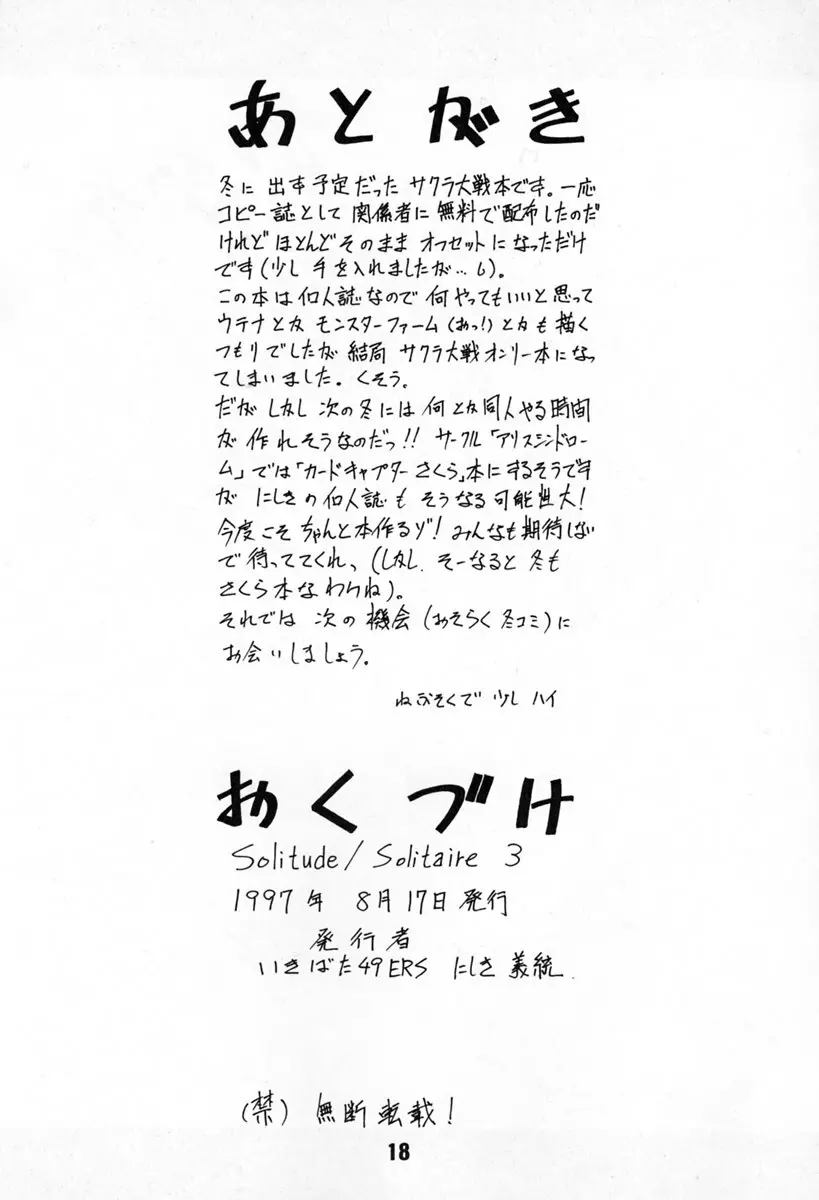 あとがき
冬に 出す予定だった サクラ大戦本です。一応
コピー誌として 関係者に 無料で配布したのだ
けれど ほとんどそのまま オフセットになっただけ
です(少し 手を入れましたが…)。
この本は 個人誌なので 何やってもいいと思って
ウテナとか モンスターファーム(おっ!)とかも 描く
つもりでしたが 結局 サクラ大戦オンリー本になっ
てしまいました。くそう。
だが しかし 次の冬には 何とか同人やる時間
が 作れそうなのだっ!! サークル「アリスシンドロー
ム」では「カードキャプター さくら」本にするそうです
が にしきの 個人誌も そうなる可能性大!
今度こそ ちゃんと本作るゾ! みんなも期待しない
で 待っててくれ、(しかし そーなると 冬も
さくら本なわけね)。
それでは 次の 機会(おそらく 冬コミ)に
お会いしましょう。
ねぶそくで 少し ハイ
おくづけ
Solitude/Solitaire 3
1997年 8月17日発行
発行者
いきばた49ERS にしき義統
(禁) 無断転載!
18